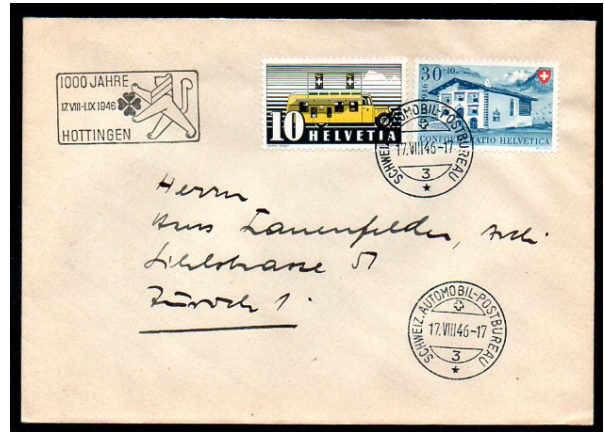 1000 JAHRE
17.VIII-1.IX 1946
HOTTINGEN
10 HELVETIA
30+10
1946
CONFOEDERATIO HELVETICA
SCHWEIZ. AUTOMOBIL-POSTBUREAU
17.VIII 46-17
3
Herrn
Hans Lauenfelder, Arch.
Sihlstrasse 51
Zürich 1.
SCHWEIZ. AUTOMOBIL-POSTBUREAU
17.VIII 46-17
3